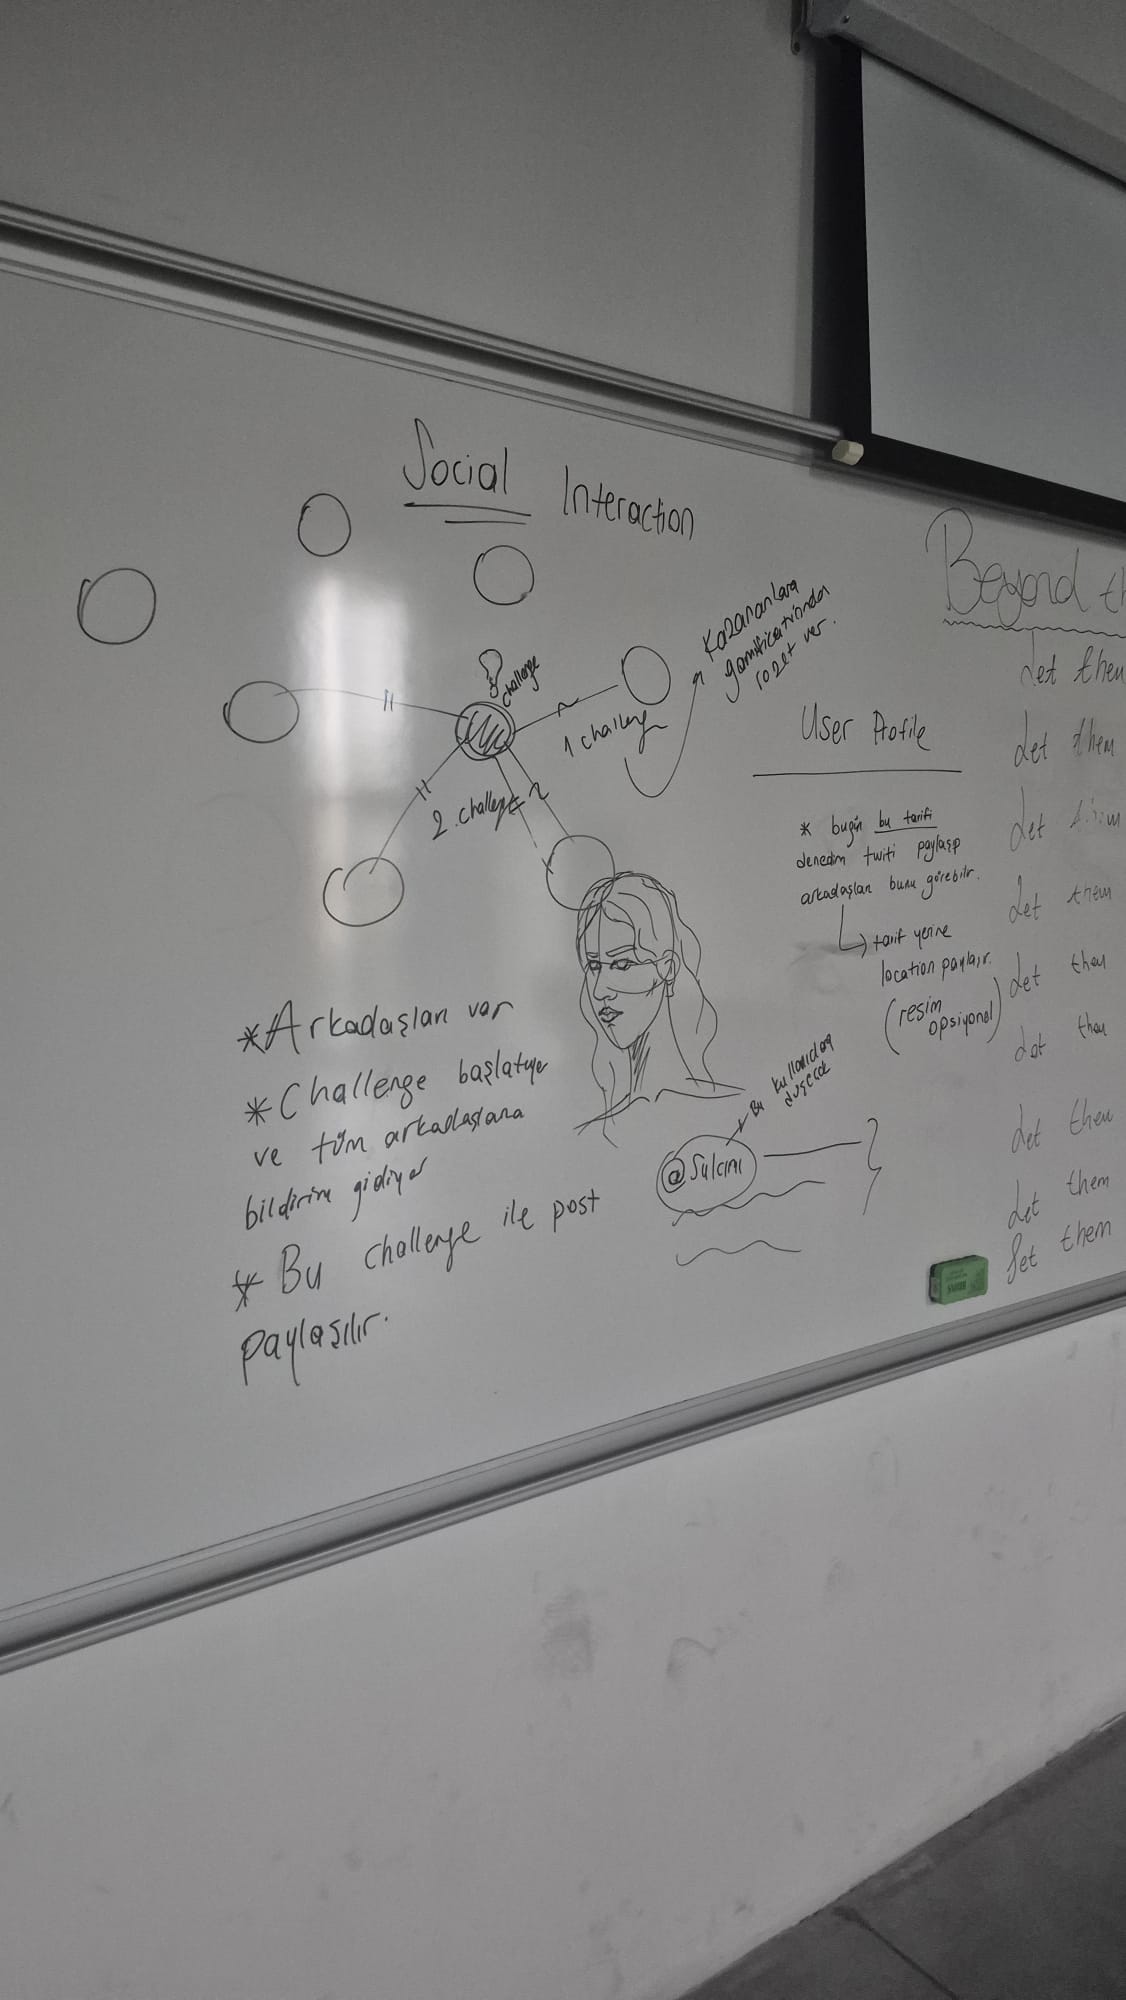 Social Interaction
challenge
1 challenge
2. challenge
Kazananlara
gamification'dan
rozet ver.
User Profile
* bugün bu tarifi
denedim twiti paylaşıp
arkadaşları bunu görebilir.
→ tarif yerine
location paylaşır.
(resim
opsiyonel)
* Arkadaşları var
* Challenge başlatıyor
ve tüm arkadaşlarına
bildirim gidiyor
* Bu challenge ile post
paylaşılır.
@Sulcini
Bu kullanıcıdan
düşecek
Beyond th
Let them
Let them
Let
Let them
Let them
Let them
Let them
Let them
Let them